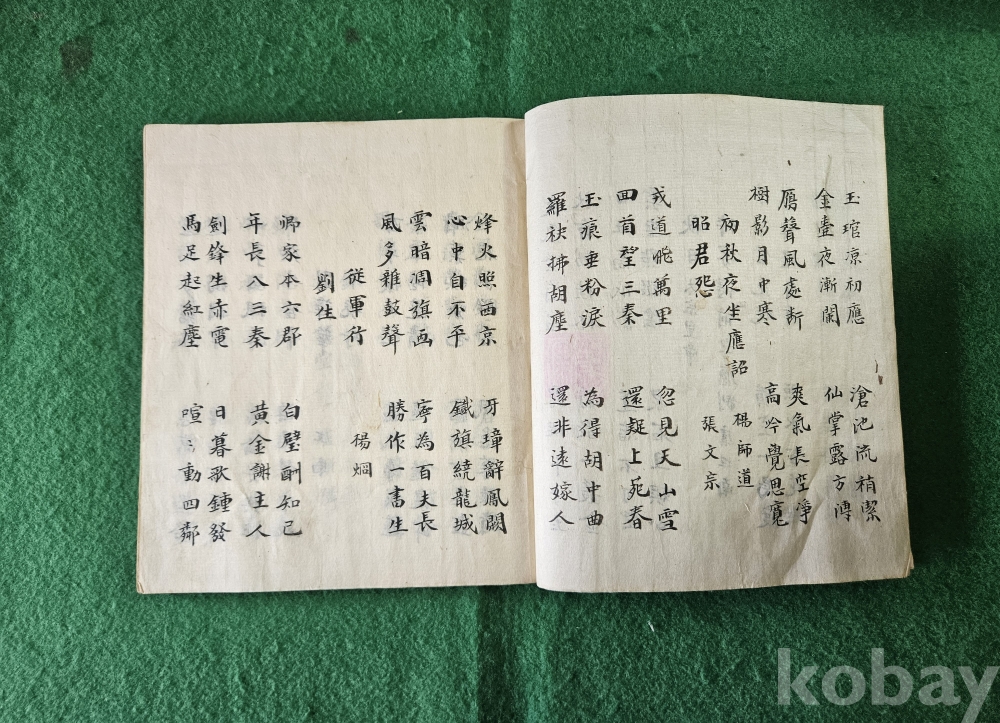 玉琯凉初應　滄池流稍潔
金壺夜漸闌　仙掌露方漙
鴈聲風處斷　爽氣長空淨
樹影月中寒　高吟覺思寬
初秋夜坐應詔　楊師道
昭君怨　張文宗
戎道飛萬里　忽見天山雪
回首望三秦　還疑上苑春
玉痕垂粉淚　為得胡中曲
羅袂拂胡塵　還非遠嫁人
烽火照西京　牙璋辭鳳闕
心中自不平　鐵旗繞龍城
雲暗凋旗画　寧為百夫長
風多雜鼓聲　勝作一書生
從軍行　楊炯
劉生
卿家本六郡　白璧酬知己
年長八三秦　黃金謝主人
劍鋒生赤電　日暮歌鍾發
馬足起紅塵　喧〻動四鄰
kobay